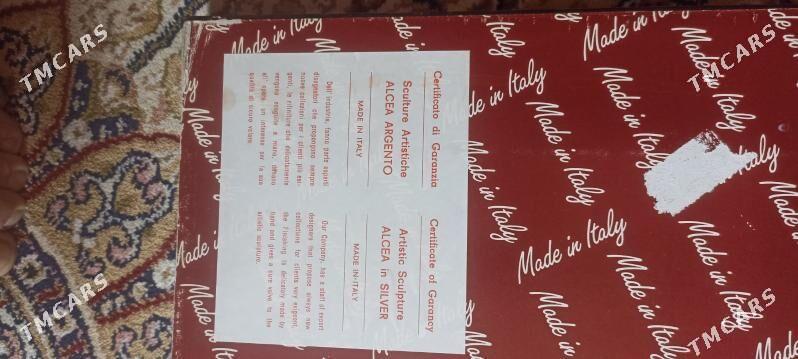 Certificato di Garanzia
Sculture Artistiche
ALCEA ARGENTO
MADE IN ITALY
Dell'industria, fanno parte esperti
disegnatori che propongono sempre
nuove collezioni per i clienti più esi-
genti, le rifiniture che delicatamente
vengono eseguite a mano, danno
all'opera un interesse per la sua
qualità di sicuro valore.
Certificate of Garancy
Artistic Sculpture
ALCEA in SILVER
MADE IN ITALY
Our Company, has a staff of expert
designers that propose always new
collections for clients very exigent,
the Finisking is delicatory made by
hand and gives a sure valve to the
artistic sculpture.
Made in Italy
Made in Italy
Made in Italy
Made in Italy
Made in Italy
Made in Italy
Made in Italy
Made in Italy
TMCARS
TMCARS
TMCARS
TMCARS